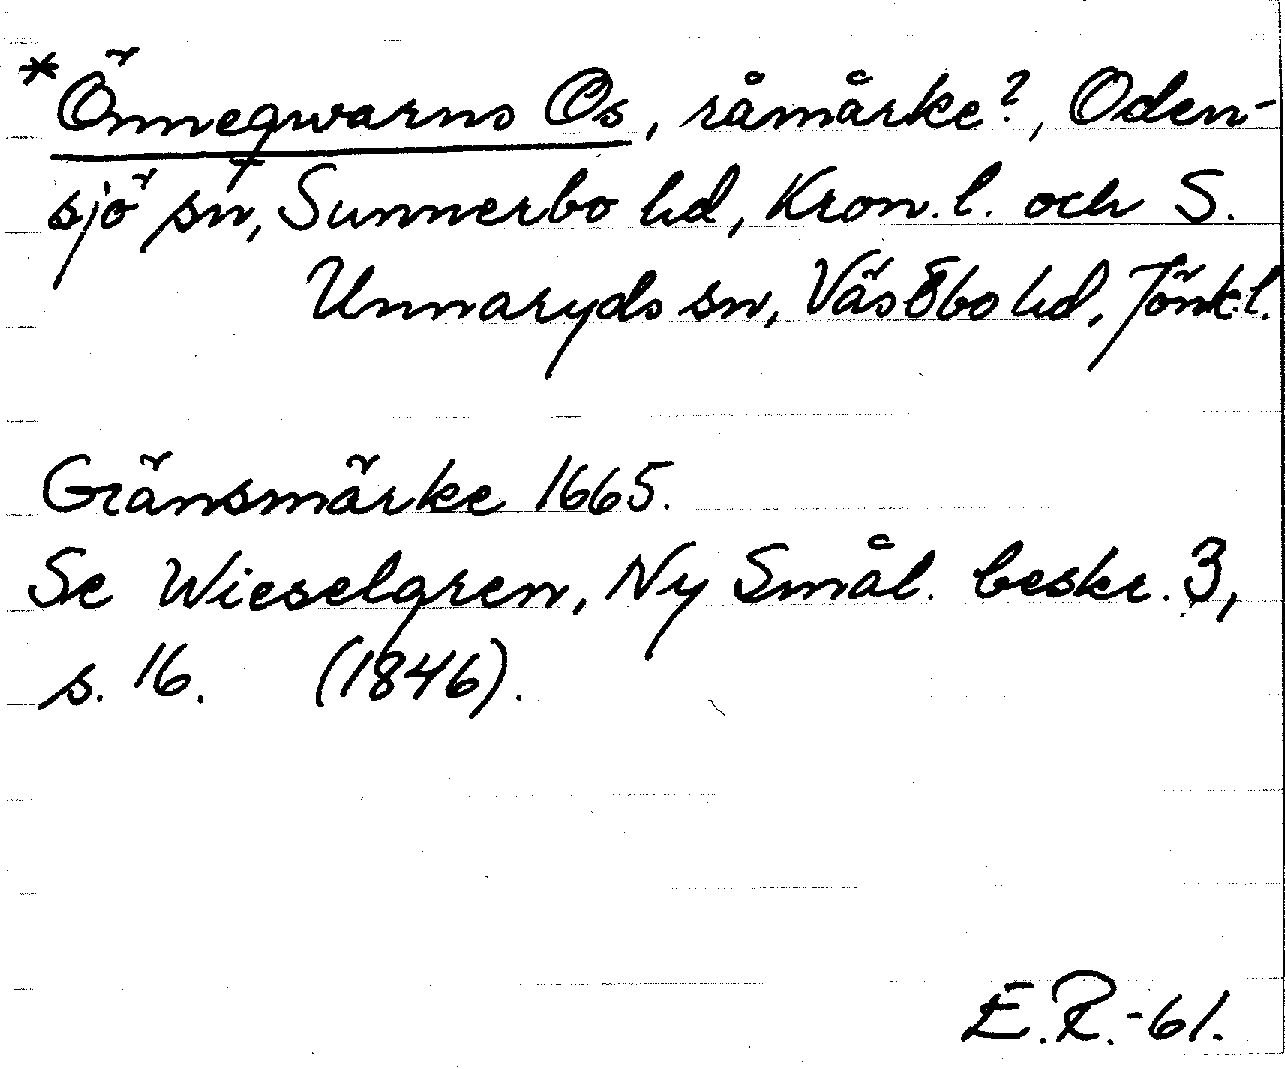 *Önneqwarns Os, råmärke?, Oden-
sjö sn, Sunnerbo hd, Kron.l. och S.
Unnaryds sn, Västbo hd, Jönk.l.
Gränsmärke 1665.
Se Wieselgren, Ny Smål. beskr. 3,
s. 16. (1846).
E.R.-61.